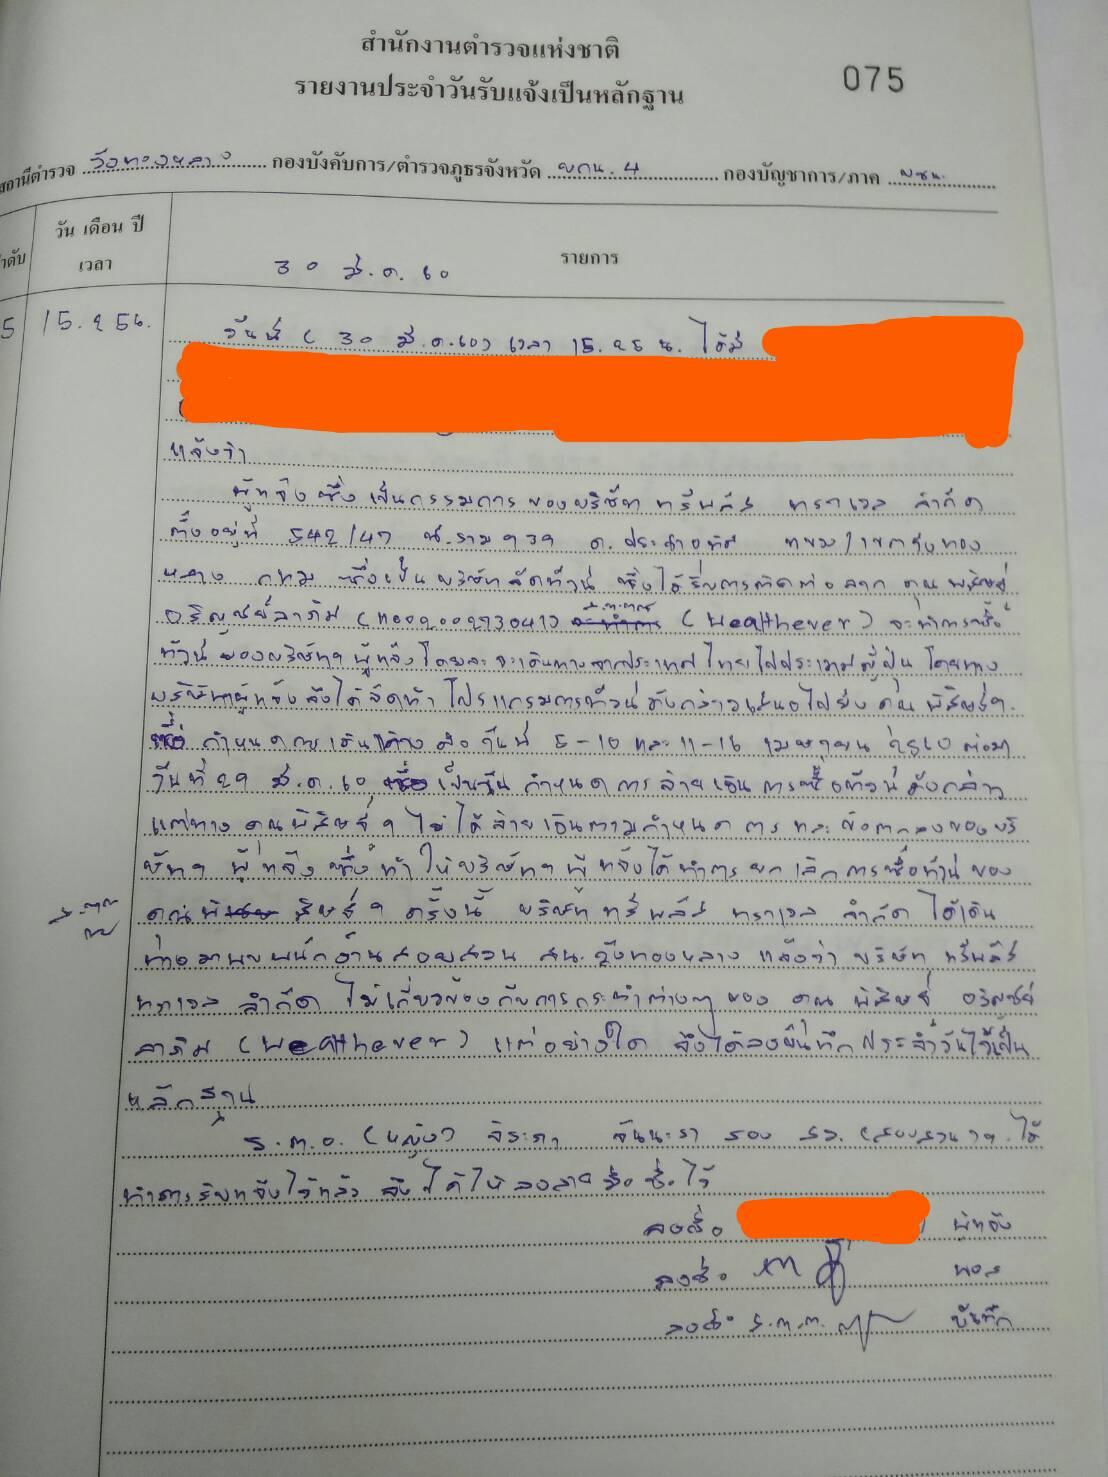 สำนักงานตำรวจแห่งชาติ
รายงานประจำวันรับแจ้งเป็นหลักฐาน
075
สถานีตำรวจ วังทองหลาง กองบังคับการ/ตำรวจภูธรจังหวัด บกน.4 กองบัญชาการ/ภาค บชน.
วัน เดือน ปี
เวลา
รายการ
30 มี.ค. 60
5 15.25น. วันนี้ ( 30 มี.ค.60) เวลา 15.25 น. ได้มี
แจ้งว่า
ผู้แจ้งซึ่งเป็นกรรมการของบริษัท ทริพลัส ทราเวล จำกัด
ตั้งอยู่ที่ 542/47 ถ.ราม 39 ถ.ประชาอุทิศ แขวง/เขตวังทอง
หลาง กทม ซึ่งเป็นบริษัทจัดทัวร์ ซึ่งได้รับการติดต่อจาก คุณ พสิษฐ์
อริญชย์ลาภิศ (Wealthever) จะทำการซื้อ
ทัวร์ ของบริษัทฯ ผู้แจ้ง โดยจะเดินทางจากประเทศไทยไปประเทศญี่ปุ่น โดยทาง
บริษัทผู้แจ้งจึงได้จัดทำโปรแกรมการทัวร์ดังกล่าวเสนอไปยังคุณ พสิษฐ์ฯ
กำหนดการเดินทาง คือ วันที่ 5-10 และ 11-16 เมษายน 2560 ต่อมา
วันที่ 29 มี.ค. 60 เป็นวันกำหนดการจ่ายเงินการซื้อทัวร์ดังกล่าว
แต่ทาง คุณพสิษฐ์ ฯ ไม่ได้จ่ายเงินตามกำหนดการ และข้อตกลงของบริ
ษัทฯ ผู้แจ้ง ซึ่งทำให้บริษัทฯ ผู้แจ้งได้ทำการยกเลิกการซื้อทัวร์ของ
คุณพสิษฐ์ ฯ ครั้งนี้ บริษัท ทริพลัส ทราเวล จำกัด ได้เดิน
ทางมาพบพนักงานสอบสวน สน.วังทองหลาง แจ้งว่า บริษัท ทริพลัส
ทราเวล จำกัด ไม่เกี่ยวข้องกับการกระทำต่างๆของ คุณ พสิษฐ์ อริญชย์
ลาภิศ (Wealthever) แต่อย่างใด จึงได้ลงบันทึกประจำวันไว้เป็น
หลักฐาน
ร.ต.อ. (หญิง) จิระภา จันนะรา รอง สว.(สอบสวน)ฯ ได้
ทำการรับแจ้งไว้แล้ว จึงได้ให้ลงลายมือชื่อไว้
ลงชื่อ ผู้แจ้ง
ลงชื่อ พงส
ลงชื่อ ร.ต.ต. บันทึก